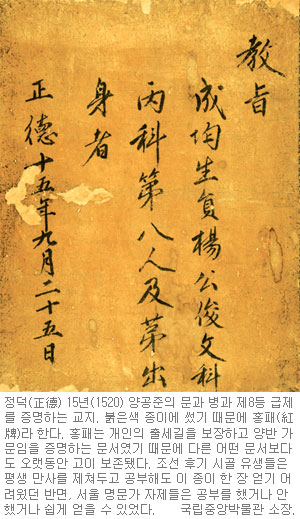 教旨
成均生員楊公俊文科
丙科第八人及第出
身者
正德十五年九月二十五日
정덕(正德) 15년(1520) 양공준의 문과 병과 제8등 급제
를 증명하는 교지. 붉은색 종이에 썼기 때문에 홍패(紅
牌)라 한다. 홍패는 개인의 출세길을 보장하고 양반 가
문임을 증명하는 문서였기 때문에 다른 어떤 문서보다
도 오랫동안 고이 보존됐다. 조선 후기 시골 유생들은
평생 만사를 제쳐두고 공부해도 이 종이 한 장 얻기 어
려웠던 반면, 서울 명문가 자제들은 공부를 했거나 안
했거나 쉽게 얻을 수 있었다. 국립중앙박물관 소장.